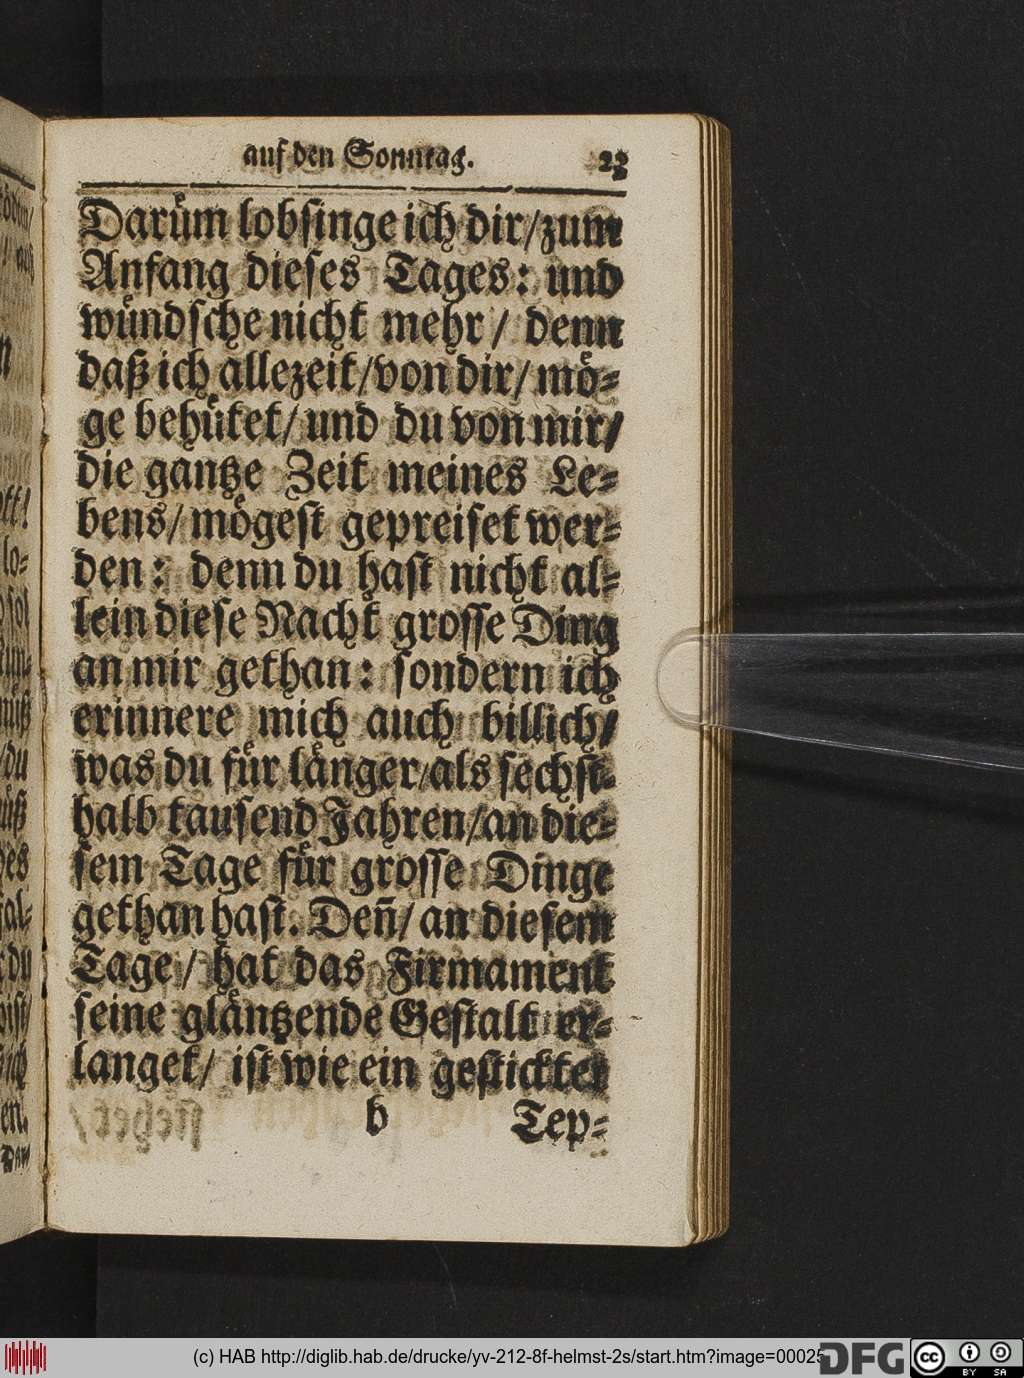 auf den Sonntag. 23
Darům lobsinge ich dir/ zum
Anfang dieses Tages: und
wůndsche nicht mehr/ denn
daß ich allezeit/ von dir/ mö-
ge behůtet/ und du von mir/
die gantze Zeit meines Le-
bens/ mögest gepreiset wer-
den: denn du hast nicht al-
lein diese Nacht grosse Ding
an mir gethan: sondern ich
erinnere mich auch billich/
was du für länger/ als sechst-
halb tausend Jahren/ an die-
sem Tage für grosse Dinge
gethan hast. Deñ/ an diesem
Tage/ hat das Firmament
seine gläntzende Gestalt er-
langet/ ist wie ein gestickter
b Tep-
(c) HAB http://diglib.hab.de/drucke/yv-212-8f-helmst-2s/start.htm?image=00025
DFG
cc BY SA